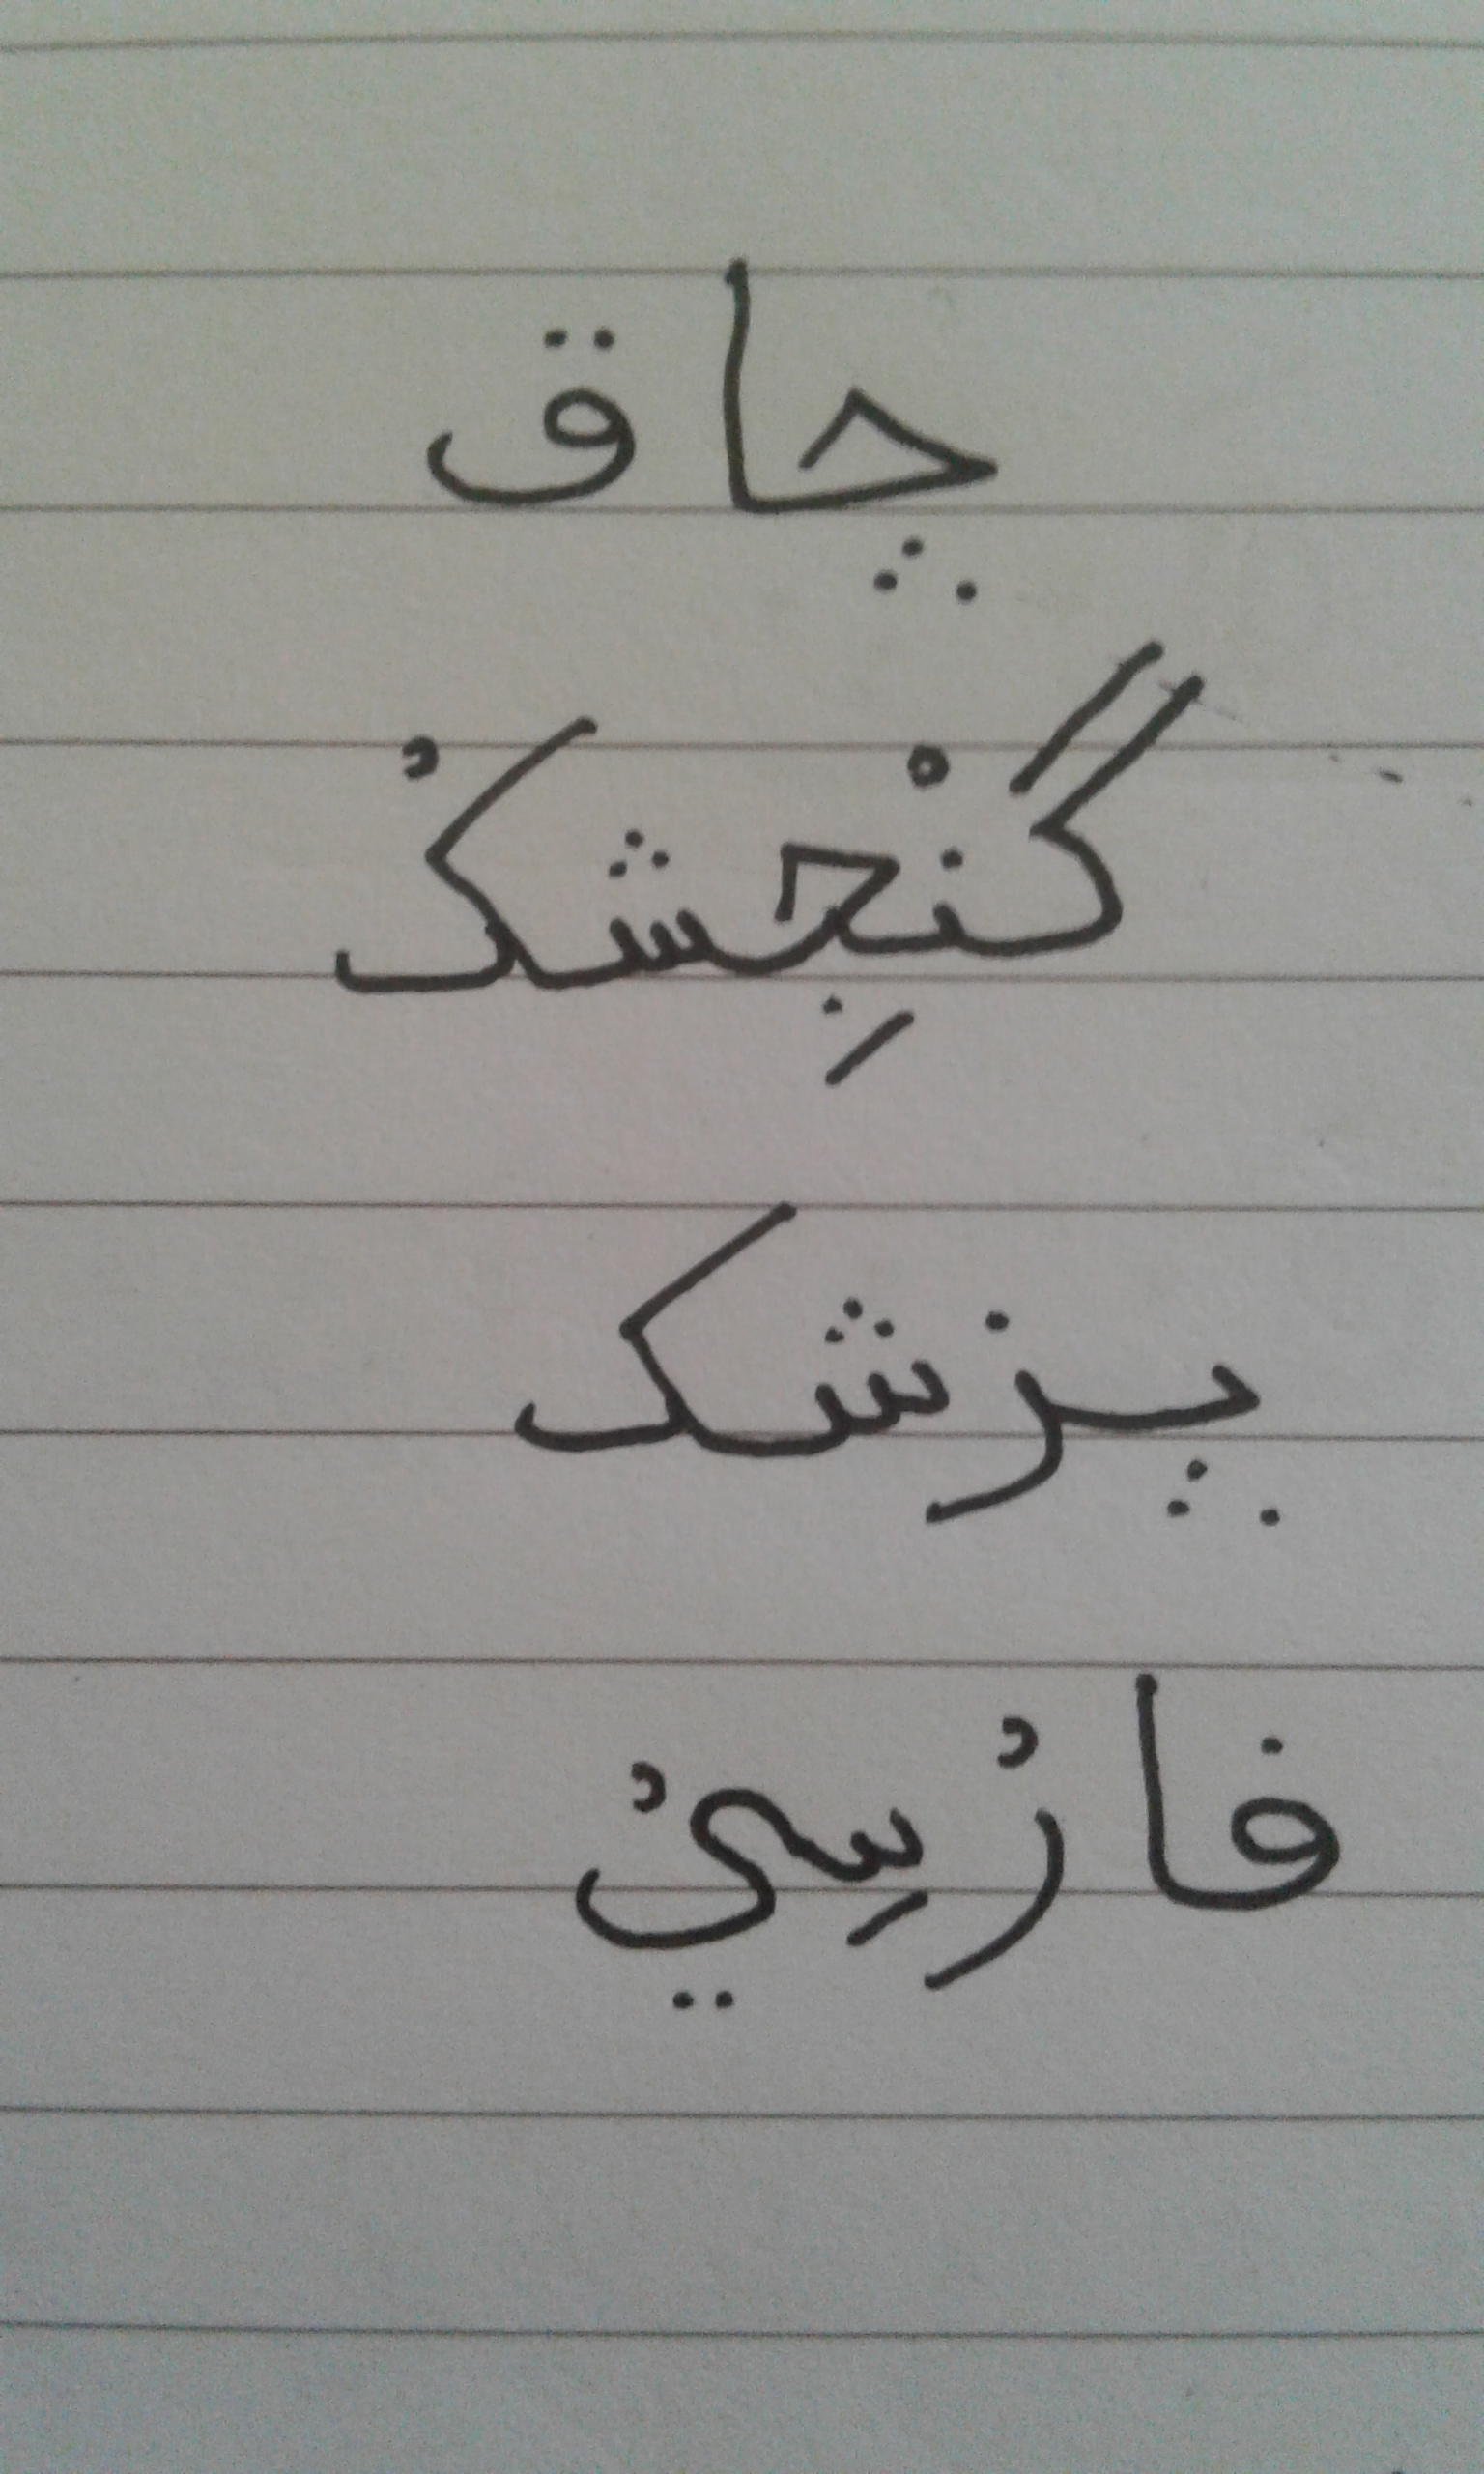 چاق
گنْجِشکْ
پزشک
فارْسِيْ